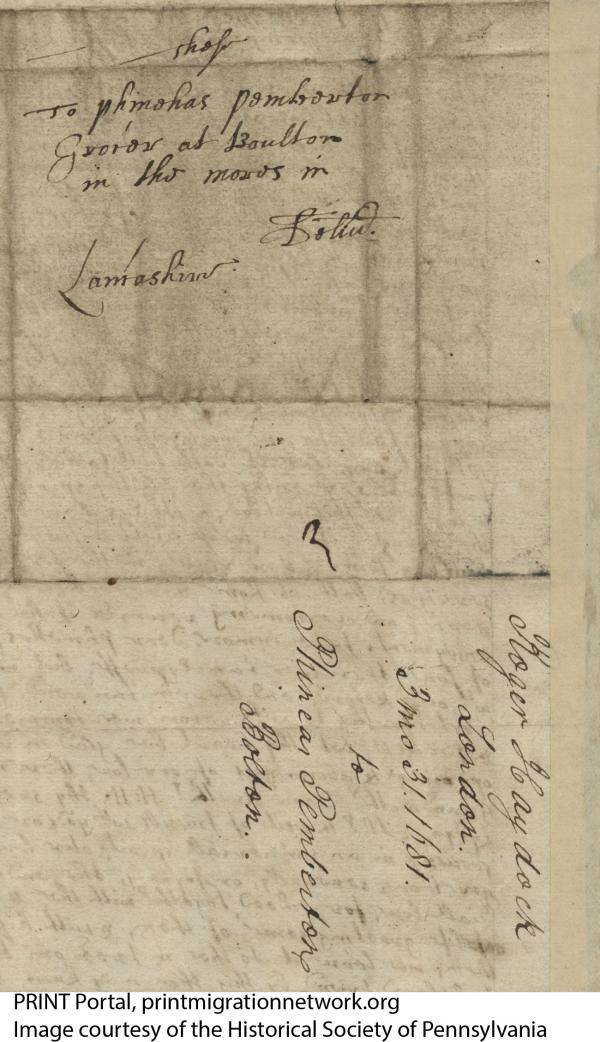 These
To phinehas pemberton
Grocer at Boulton
in the mores in
Lancashire
Roger Haydock
London.
3 mo 31. 1681.
to
Phineas Pemberton
Bolton.
PRINT Portal, printmigrationnetwork.org
Image courtesy of the Historical Society of Pennsylvania